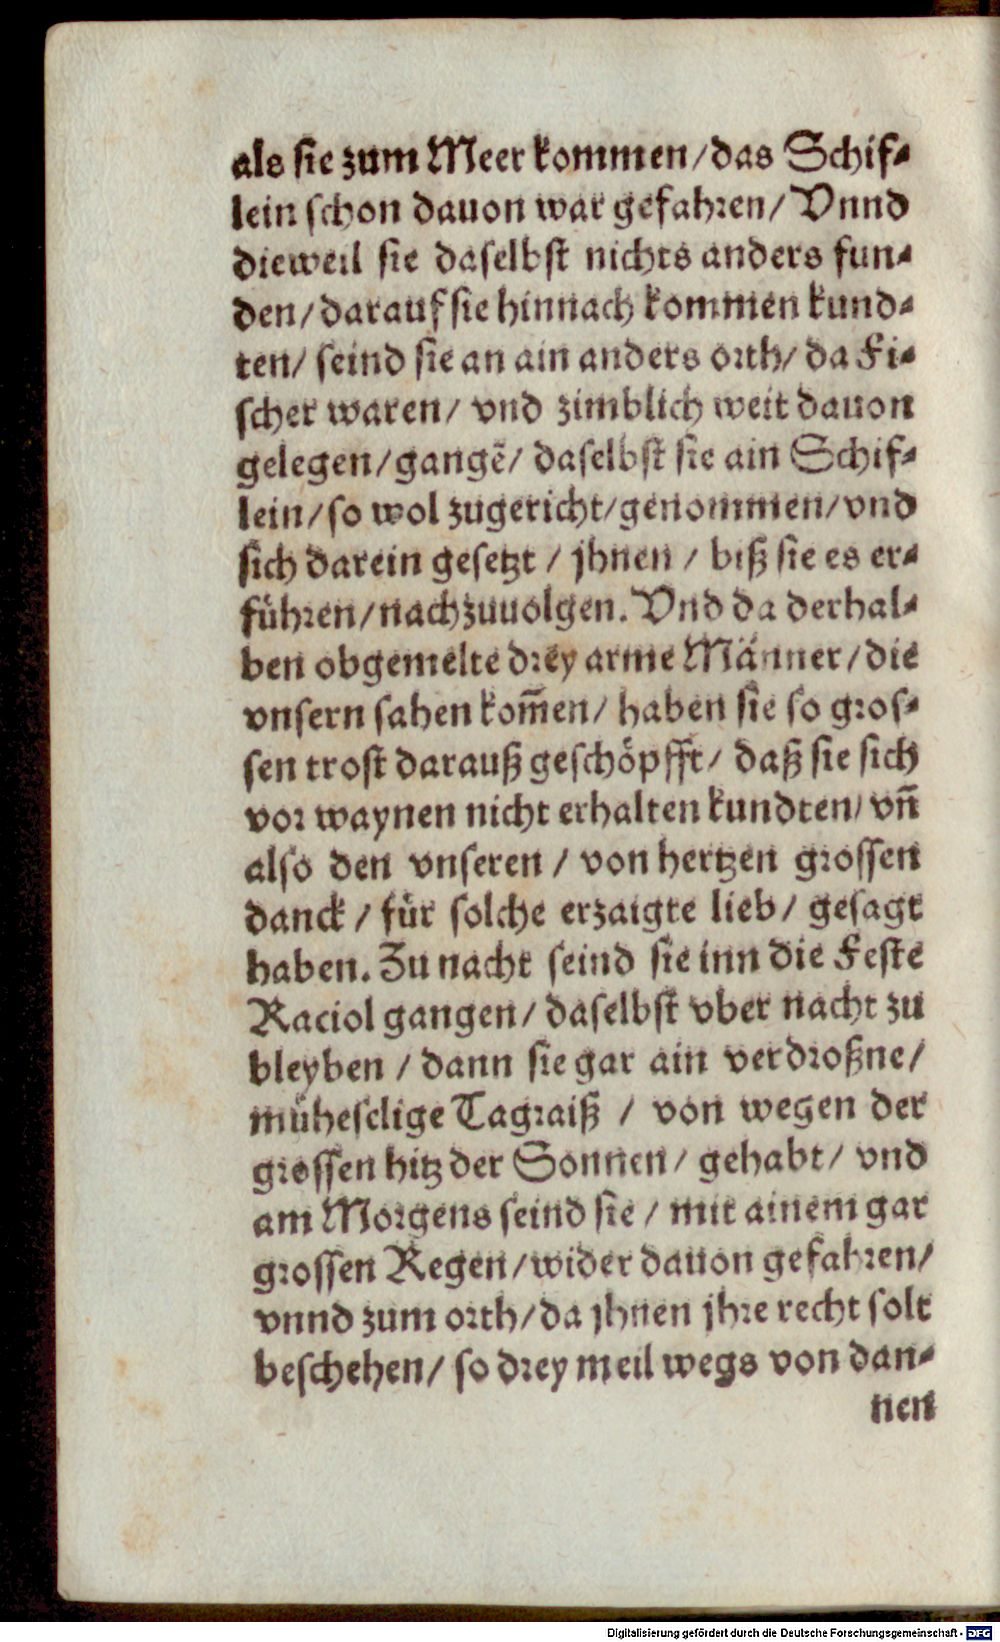 als sie zum Meer kommen/das Schif-
lein schon dauon war gefahren/ Vnnd
dieweil sie daselbst nichts anders fun-
den/darauf sie hinnach kommen kund-
ten/ seind sie an ain anders orth/ da Fi-
scher waren/ vnd zimblich weit dauon
gelegen/gangẽ/ daselbst sie ain Schif-
lein/so wol zugericht/genommen/vnd
sich darein gesetzt / jhnen / biß sie es er-
führen/nachzuuolgen. Vnd da derhal-
ben obgemelte drey arme Männer/die
vnsern sahen kom̃en/ haben sie so gros-
sen trost darauß geschöpfft/ daß sie sich
vor waynen nicht erhalten kundten/ vñ
also den vnseren / von hertzen grossen
danck / für solche erzaigte lieb/ gesagt
haben. Zu nacht seind sie inn die Feste
Raciol gangen/ daselbst vber nacht zu
bleyben / dann sie gar ain verdroßne/
müheselige Tagraiß / von wegen der
grossen hitz der Sonnen/ gehabt/ vnd
am Morgens seind sie / mit ainem gar
grossen Regen/wider dauon gefahren/
vnnd zum orth/da jhnen jhre recht solt
beschehen/ so drey meil wegs von dan-
nen
Digitalisierung gefördert durch die Deutsche Forschungsgemeinschaft - DFG